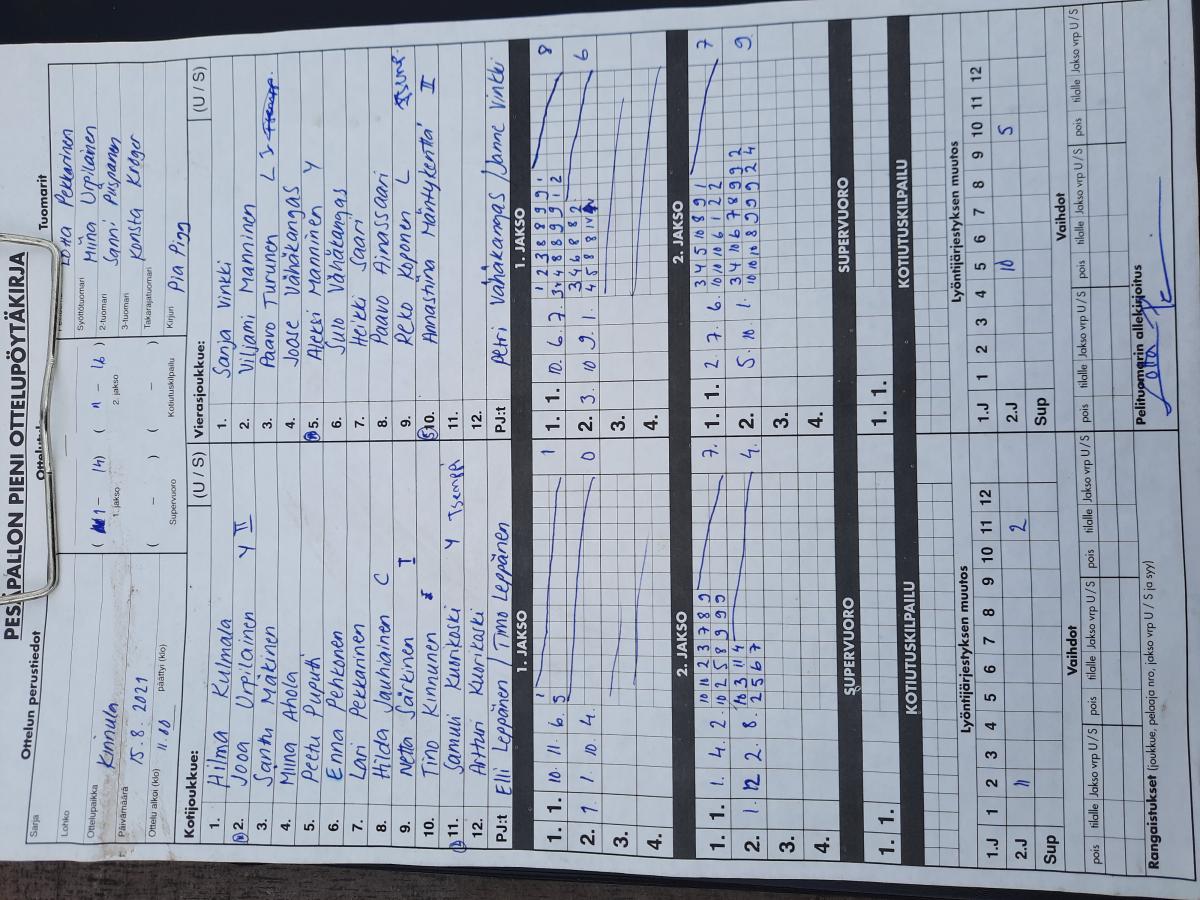 PESÄPALLON PIENI OTTELUPÖYTÄKIRJA
Ottelun perustiedot
Tuomarit
Sarja
Lohko
Ottelupaikka Kinnula
Päivämäärä 15.8.2021
Ottelu alkoi (klo) 11.00 päättyi (klo)
( 1 - 14 ) ( 11 - 16 )
1. jakso 2. jakso
( - ) ( - )
Supervuoro Kotiutuskilpailu
Lotta Pekkarinen
Syöttötuomari Miina Urpilainen
2-tuomari Sanni Piispanen
3-tuomari Konsta Kröger
Takarajatuomari
Kirjuri Pia Pigg
Kotijoukkue: (U / S)
1. Hilma Kulmala
2. Jooa Urpilainen Y II
3. Santtu Mäkinen
4. Miina Ahola
5. Peetu Puputti
6. Enna Pehkonen
7. Lari Pekkarinen
8. Hilda Jauhiainen C
9. Netta Särkinen I
10. Tino Kinnunen
11. Samuli Kuorikoski Y Tsemppi
12. Artteri Kuorikoski
PJ:t Elli Leppänen / Timo Leppänen
Vierasjoukkue: (U / S)
1. Sanja Vinkki
2. Viljami Manninen
3. Paavo Turunen L
4. Joose Vähäkangas
5. Aleksi Manninen Y
6. Sulo Vähäkangas
7. Heikki Saari
8. Paavo Ainassaari
9. Reko Koponen L
10. Annastiina Mäntykenttä II
11.
12.
PJ:t Petri Vähäkangas / Janne Vinkki
1. JAKSO
1. 1. 10. 11. 6. 1
2. 7. 1. 10. 4. 0
3.
4.
1. JAKSO
1. 1. 10. 6. 7. 8
2. 3. 10 9. 1. 6
3.
4.
2. JAKSO
1. 1. 1. 4. 2. 7.
10 10 2 3 7 8 9
10 2 5 8 9 9 9
2. 1. 12 2. 8. 4.
2 5 6 7
3.
4.
2. JAKSO
1. 1. 2. 7. 6. 7
3 4 5 10 8 9 1
10 10 10 6 1 2 2
2. 5. 10. 1. 9.
3 4 10 6 7 8 9 9 2
10 10 10 8 9 9 9 2 4
3.
4.
SUPERVUORO
1. 1.
SUPERVUORO
1. 1.
KOTIUTUSKILPAILU
KOTIUTUSKILPAILU
Lyöntijärjestyksen muutos
1 2 3 4 5 6 7 8 9 10 11 12
1.J
2.J 11 2
Sup
Lyöntijärjestyksen muutos
1 2 3 4 5 6 7 8 9 10 11 12
1.J
2.J 10 5
Sup
Vaihdot
pois tilalle Jakso vrp U / S pois tilalle Jakso vrp U / S pois tilalle Jakso vrp U / S
Vaihdot
pois tilalle Jakso vrp U / S pois tilalle Jakso vrp U / S pois tilalle Jakso vrp U / S
Rangaistukset (joukkue, pelaaja nro, jakso vrp U / S ja syy)
Pelituomarin allekirjoitus